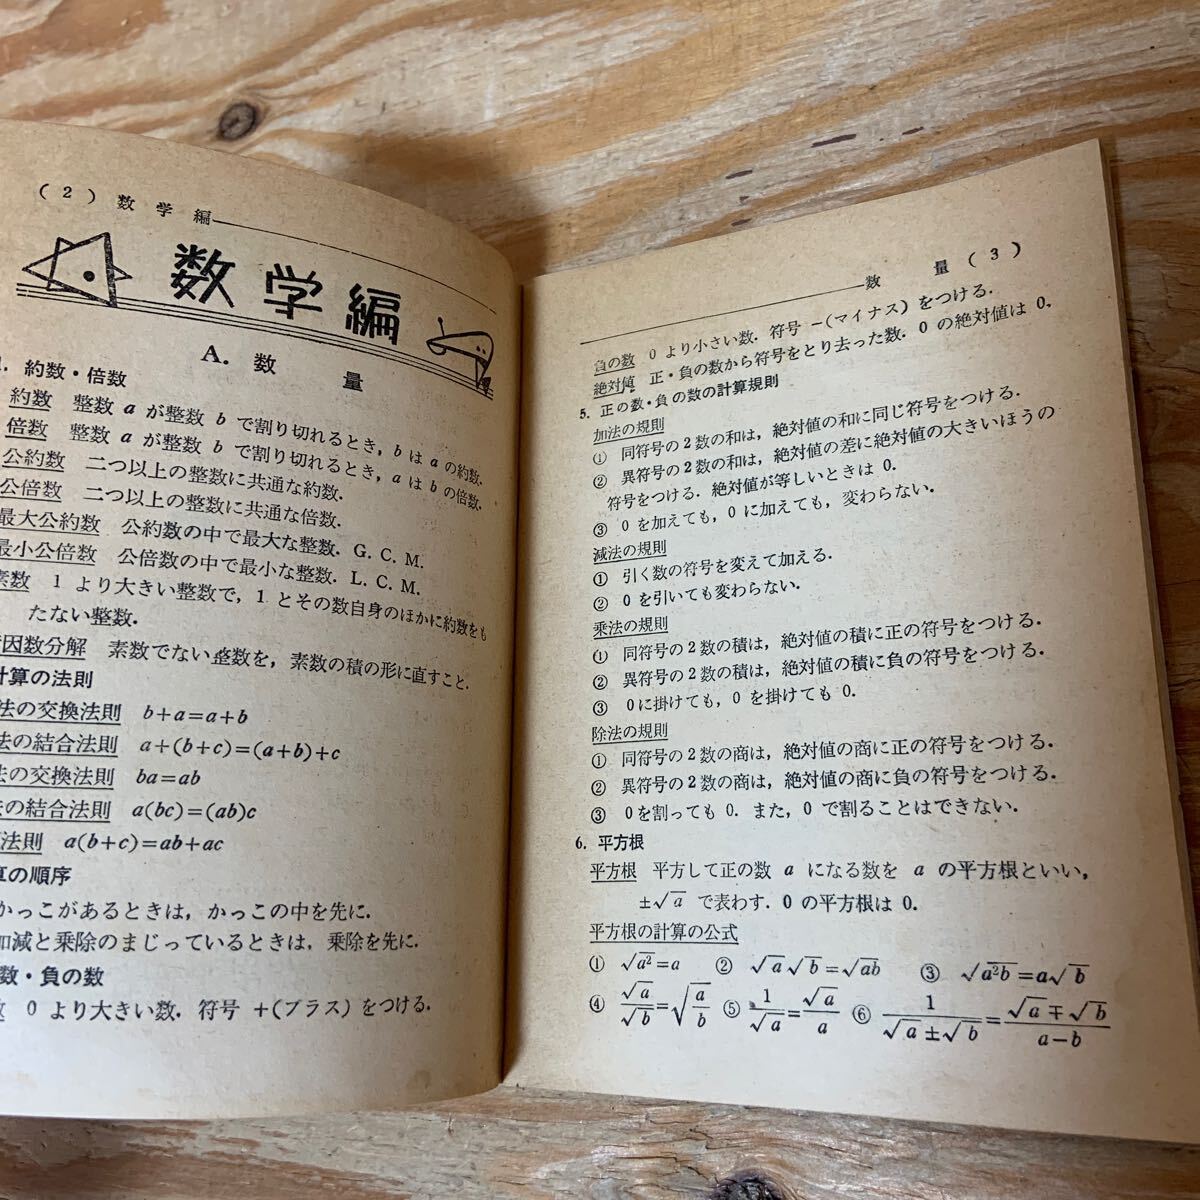 (2) 数学編
数学編
A. 数量
約数・倍数
約数 整数 a が整数 b で割り切れるとき, b は a の約数.
倍数 整数 a が整数 b で割り切れるとき, a は b の倍数.
公約数 二つ以上の整数に共通な約数.
公倍数 二つ以上の整数に共通な倍数.
最大公約数 公約数の中で最大な整数. G. C. M.
最小公倍数 公倍数の中で最小な整数. L. C. M.
素数 1 より大きい整数で, 1 とその数自身のほかに約数をも
たない整数.
因数分解 素数でない整数を, 素数の積の形に直すこと.
計算の法則
法の交換法則 b+a=a+b
法の結合法則 a+(b+c)=(a+b)+c
法の交換法則 ba=ab
法の結合法則 a(bc)=(ab)c
法則 a(b+c)=ab+ac
算の順序
かっこがあるときは, かっこの中を先に.
加減と乗除のまじっているときは, 乗除を先に.
数・負の数
数 0 より大きい数. 符号 +(プラス) をつける.
数量 (3)
負の数 0 より小さい数. 符号 −(マイナス) をつける.
絶対値 正・負の数から符号をとり去った数. 0 の絶対値は 0.
5. 正の数・負の数の計算規則
加法の規則
① 同符号の2数の和は, 絶対値の和に同じ符号をつける.
② 異符号の2数の和は, 絶対値の差に絶対値の大きいほうの
符号をつける. 絶対値が等しいときは 0.
③ 0 を加えても, 0 に加えても, 変わらない.
減法の規則
① 引く数の符号を変えて加える.
② 0 を引いても変わらない.
乗法の規則
① 同符号の2数の積は, 絶対値の積に正の符号をつける.
② 異符号の2数の積は, 絶対値の積に負の符号をつける.
③ 0に掛けても, 0 を掛けても 0.
除法の規則
① 同符号の2数の商は, 絶対値の商に正の符号をつける.
② 異符号の2数の商は, 絶対値の商に負の符号をつける.
③ 0を割っても 0. また, 0 で割ることはできない.
6. 平方根
平方根 平方して正の数 a になる数を a の平方根といい,
±√a で表わす. 0 の平方根は 0.
平方根の計算の公式
① √a²=a ② √a√b=√ab ③ √a²b=a√b
④ √a/√b=√(a/b) ⑤ 1/√a=√a/a ⑥ 1/(√a±√b)=(√a∓√b)/(a−b)